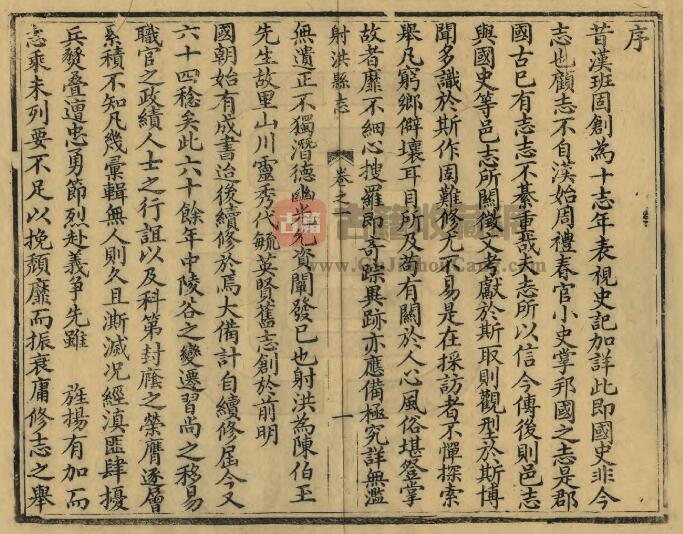 序
昔漢班固創為十志年表視史記加詳此即國史非今
志也顧志不自漢始周禮春官小史掌邦國之志是郡
國古已有志志不綦重哉夫志所以信今傳後則邑志
與國史等邑志所關徵文考獻於斯取則觀型於斯博
聞多識於斯作固難修尤不易是在採訪者不憚探索
舉凡窮鄉僻壤耳目所及苟有關於人心風俗堪登掌
故者靡不細心搜羅即奇踪異跡亦應備極究詳無濫
射洪縣志
卷之一
一
無遺正不獨潛德幽光尤資闡發已也射洪為陳伯玉
先生故里山川靈秀代毓英賢舊志創於前明
國朝始有成書迨後續修於焉大備計自續修屆今又
六十四稔矣此六十餘年中陵谷之變遷習尚之移易
職官之政績人士之行誼以及科第封廕之榮膺逐層
累積不知凡幾彙輯無人則久且澌滅況經滇匪肆擾
兵燹叠遭忠勇節烈赴義爭先雖 旌揚有加而
志乘未列要不足以挽頹靡而振衰庸修志之舉
古籍
古籍收藏网
www.GuJiShouCang.com